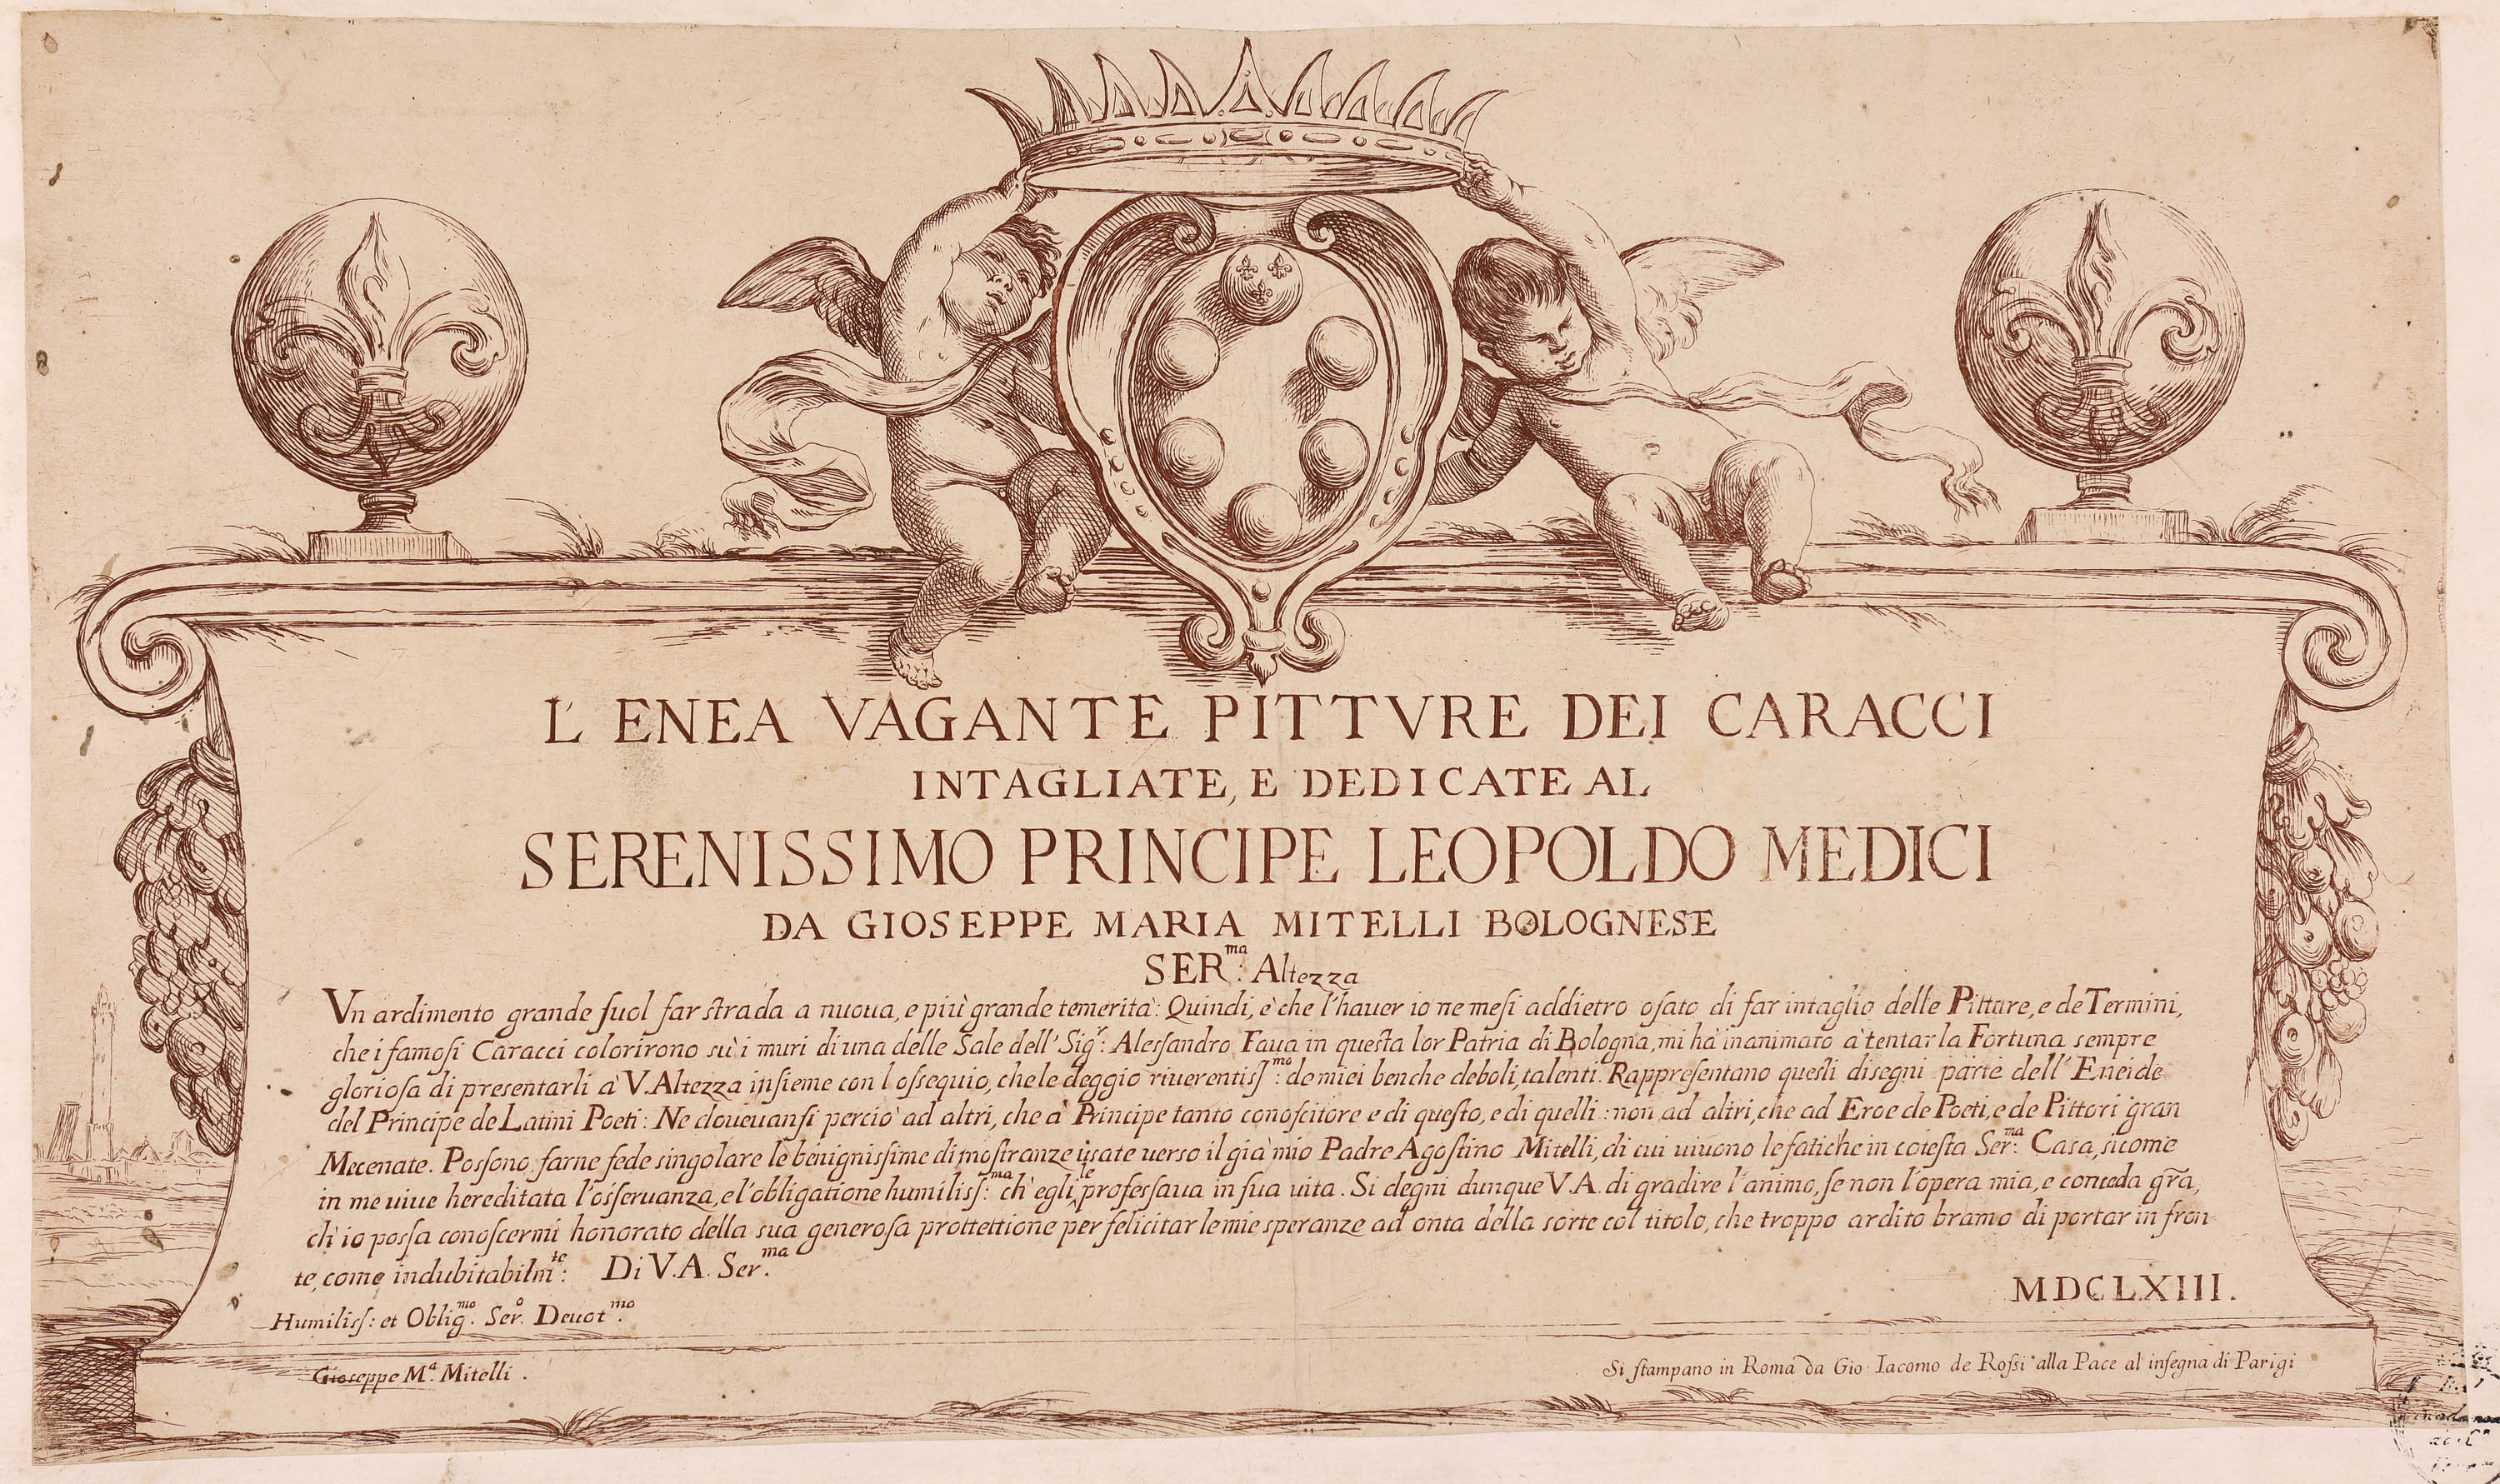 L' ENEA VAGANTE PITTVRE DEI CARACCI
INTAGLIATE, E DEDICATE AL
SERENISSIMO PRINCIPE LEOPOLDO MEDICI
DA GIOSEPPE MARIA MITELLI BOLOGNESE
SER.ma: Altezza
Vn ardimento grande ſuol far strada a nuoua, e più grande temerità: Quindi, è che l'hauer io ne meſi addietro oſato di far intaglio delle Pitture, e de Termini,
che i famoſi Caracci colorirono sù i muri di una delle Sale dell' Sig.r: Aleſsandro Faua in questa lor Patria di Bologna, mi hà inanimato à tentar la Fortuna sempre
glorioſa di presentarli à V. Altezza inſieme con l oſsequio, che le deggio riuerentiſſ.mo: de miei benche deboli, talenti. Rappreſentano queſti disegni parte dell' Eneide
del Principe de Latini Poeti: Ne doueuanſi perciò ad altri, che à Principe tanto conoſcitore e di queſto, e di quelli: non ad altri, che ad Eroe de Poeti, e de Pittori gran
Mecenate. Poſsono farne fede singolare le benigniſsime dimoſtranze usate uerso il già mio Padre Agoſtino Mitelli, di cui uiuono le fatiche in coteſta Ser.ma: Casa, sicome
in me uiue hereditata l'oſseruanza, e l'obligatione humiliſſ.ma: ch' egli le profeſsaua in ſua uita. Si degni dunque V.A. di gradire l'animo, ſe non l'opera mia, e conceda grã,
ch' io poſsa conoſcermi honorato della sua generoſa prottettione per felicitar le mie speranze ad onta della sorte col titolo, che troppo ardito bramo di portar in fron
te, come indubitabilm.te: Di V.A. Ser.ma
MDCLXIII.
Humiliſſ: et Oblig.mo Ser.o Deuot.mo
Gioseppe M.a Mitelli.
Si ſtampano in Roma da Gio: Iacomo de Roſsi alla Pace al inſegna di Parigi